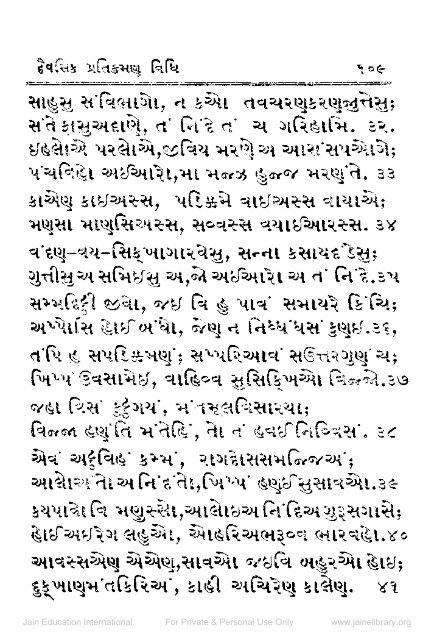 દૈવસિક પ્રતિક્રમણ વિધિ ૧૦૯
સાહુસુ સંવિભાગો, ન કઓ તવચરણકરણજુત્તેસુ;
સંતે ફાસુઅદાણે, તં નિંદે તં ચ ગરિહામિ. ૩૨.
ઇહલોએ પરલોએ,જીવિય મરણે અ આસંસપઓગે;
પંચવિહો અઈઆરો,મા મજ્ઝ હુજ્જ મરણંતે. ૩૩
કાએણ કાઇઅસ્સ, પડિક્કમે વાઇઅસ્સ વાયાએ;
મણસા માણસિઅસ્સ, સવ્વસ્સ વયાઇઆરસ્સ. ૩૪
વંદણ-વય-સિક્ખાગારવેસુ, સન્ના કસાયદંડેસુ;
ગુત્તીસુ અ સમિઇસુ અ,જો અઇઆરો અ તં નિંદે.૩૫
સમ્મદિટ્ઠી જીવો, જઇ વિ હુ પાવં સમાયરે કિંચિ;
અપ્પોસિ હોઈ બંધો, જેણ ન નિદ્ધંધસં કુણઇ.૩૬,
તંપિ હુ સપડિક્કમણં; સપ્પરિઆવં સઉત્તરગુણં ચ;
ખિપ્પં ઉવસામેઇ, વાહિવ્વ સુસિક્ખિઓ વિજ્જો.૩૭
જહા વિસં કુટ્ઠગયં, મંતમૂલવિસારયા;
વિજ્જા હણંતિ મંતેહિં, તો તં હવઈ નિવ્વિસં. ૩૮
એવં અટ્ઠવિહં કમ્મં, રાગદોસસમજ્જિઅં;
આલોઅંતો અ નિંદંતો,ખિપ્પં હણઈ સુસાવઓ.૩૯
કયપાવો વિ મણુસ્સો,આલોઇઅ નિંદિઅ ગુરુસગાસે;
હોઈ અઇરેગ લહુઓ, ઓહરિઅભરૂવ્વ ભારવહો.૪૦
આવસ્સએણ એએણ,સાવઓ જઇવિ બહુરઓ હોઇ;
દુક્ખાણમંતકિરિઅં, કાહી અચિરેણ કાલેણ. ૪૧
Jain Education International For Private & Personal Use Only www.jainelibrary.org